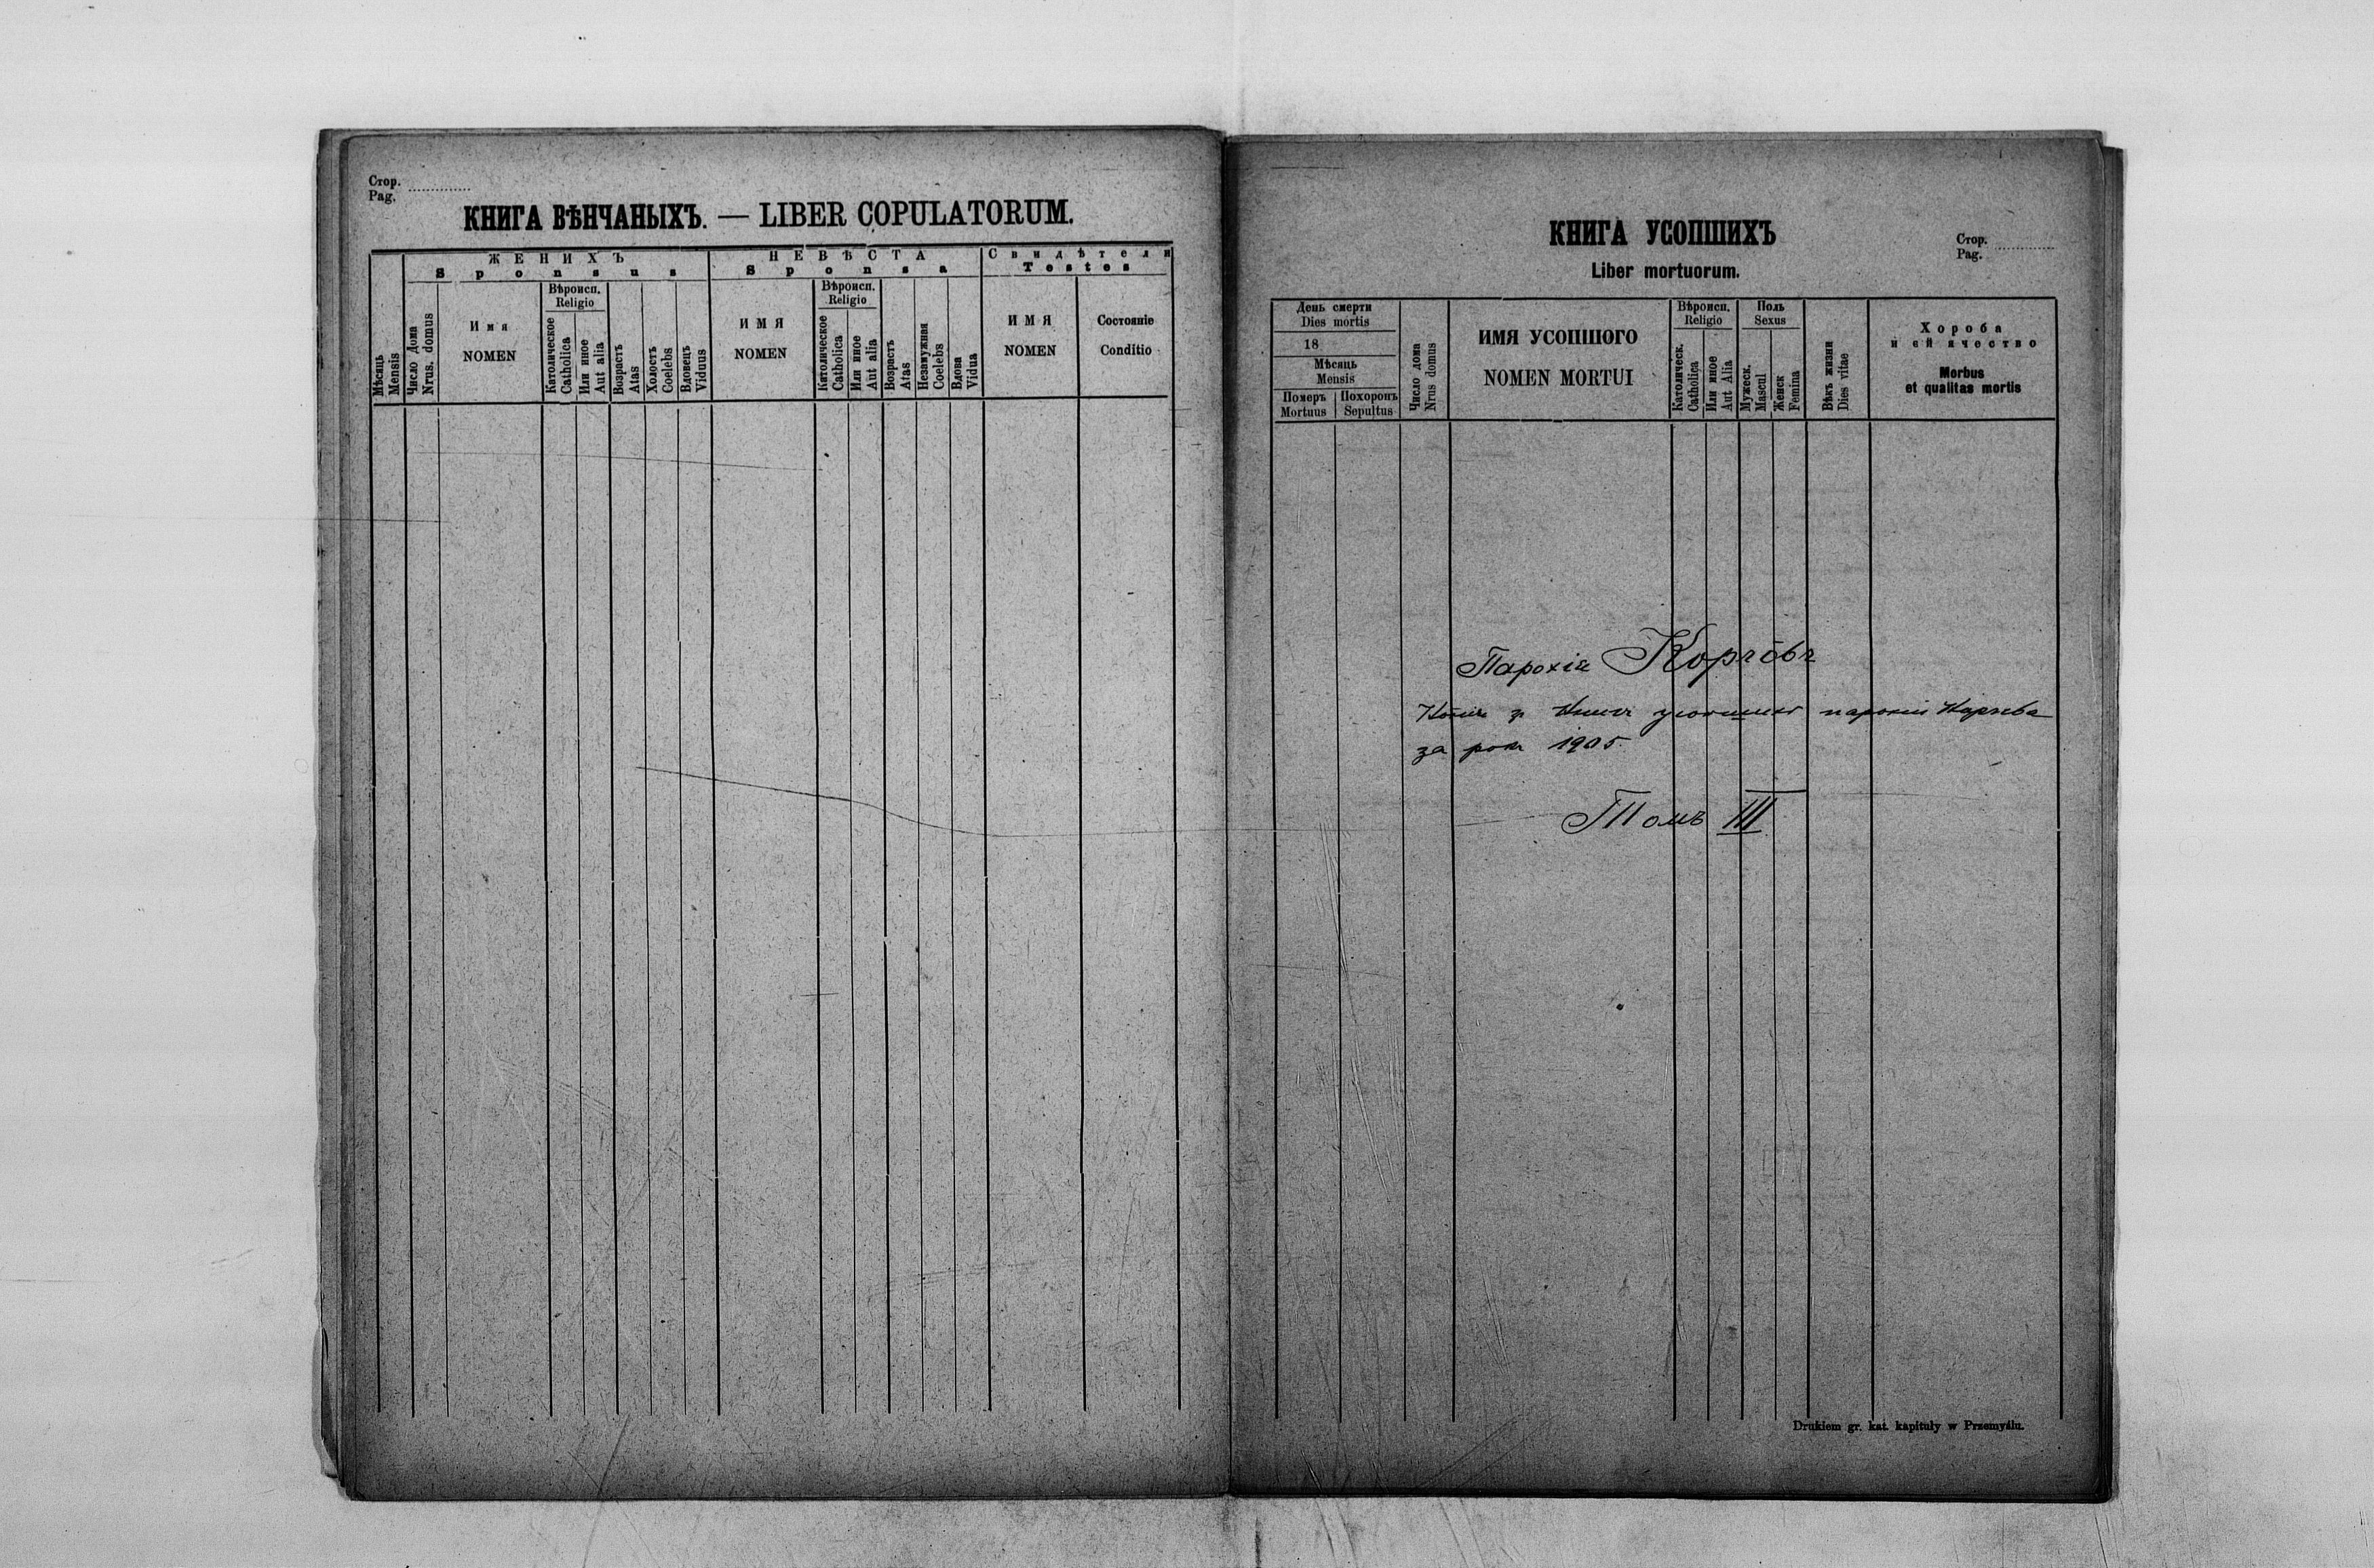 Стор.
Pag.
КНИГА ВѢНЧАНЫХЪ. — LIBER COPULATORUM.
Мѣсяць
Mensis
ЖЕНИХЪ
Sponsus
Число Дома
Nrus. domus
Имя
NOMEN
Вѣроисп.
Religio
Католическое
Catholica
Или иное
Aut alia
Возрастъ
Atas
Холостъ
Coelebs
Вдовецъ
Viduus
НЕВѢСТА
Sponsa
ИМЯ
NOMEN
Вѣроисп.
Religio
Католическое
Catholica
Или иное
Aut alia
Возрастъ
Atas
Незамужная
Coelebs
Вдова
Vidua
Свидѣтели
Testes
ИМЯ
NOMEN
Состояніе
Conditio
КНИГА УСОПШИХЪ
Liber mortuorum.
Стор.
Pag.
День смерти
Dies mortis
18
Мѣсяць
Mensis
Померъ
Mortuus
Похоронъ
Sepultus
Число дома
Nrus domus
ИМЯ УСОПШОГО
NOMEN MORTUI
Вѣроисп.
Religio
Католическ.
Catholica
Или иное
Aut Alia
Полъ
Sexus
Мужеск.
Mascul
Женск
Femina
Вѣкъ жизни
Dies vitae
Хороба
и ей ячество
Morbus
et qualitas mortis
Парохія
з усопших парохіи
за рок 1905.
Томъ III
Drukiem gr. kat. kapituły w Przemyślu.